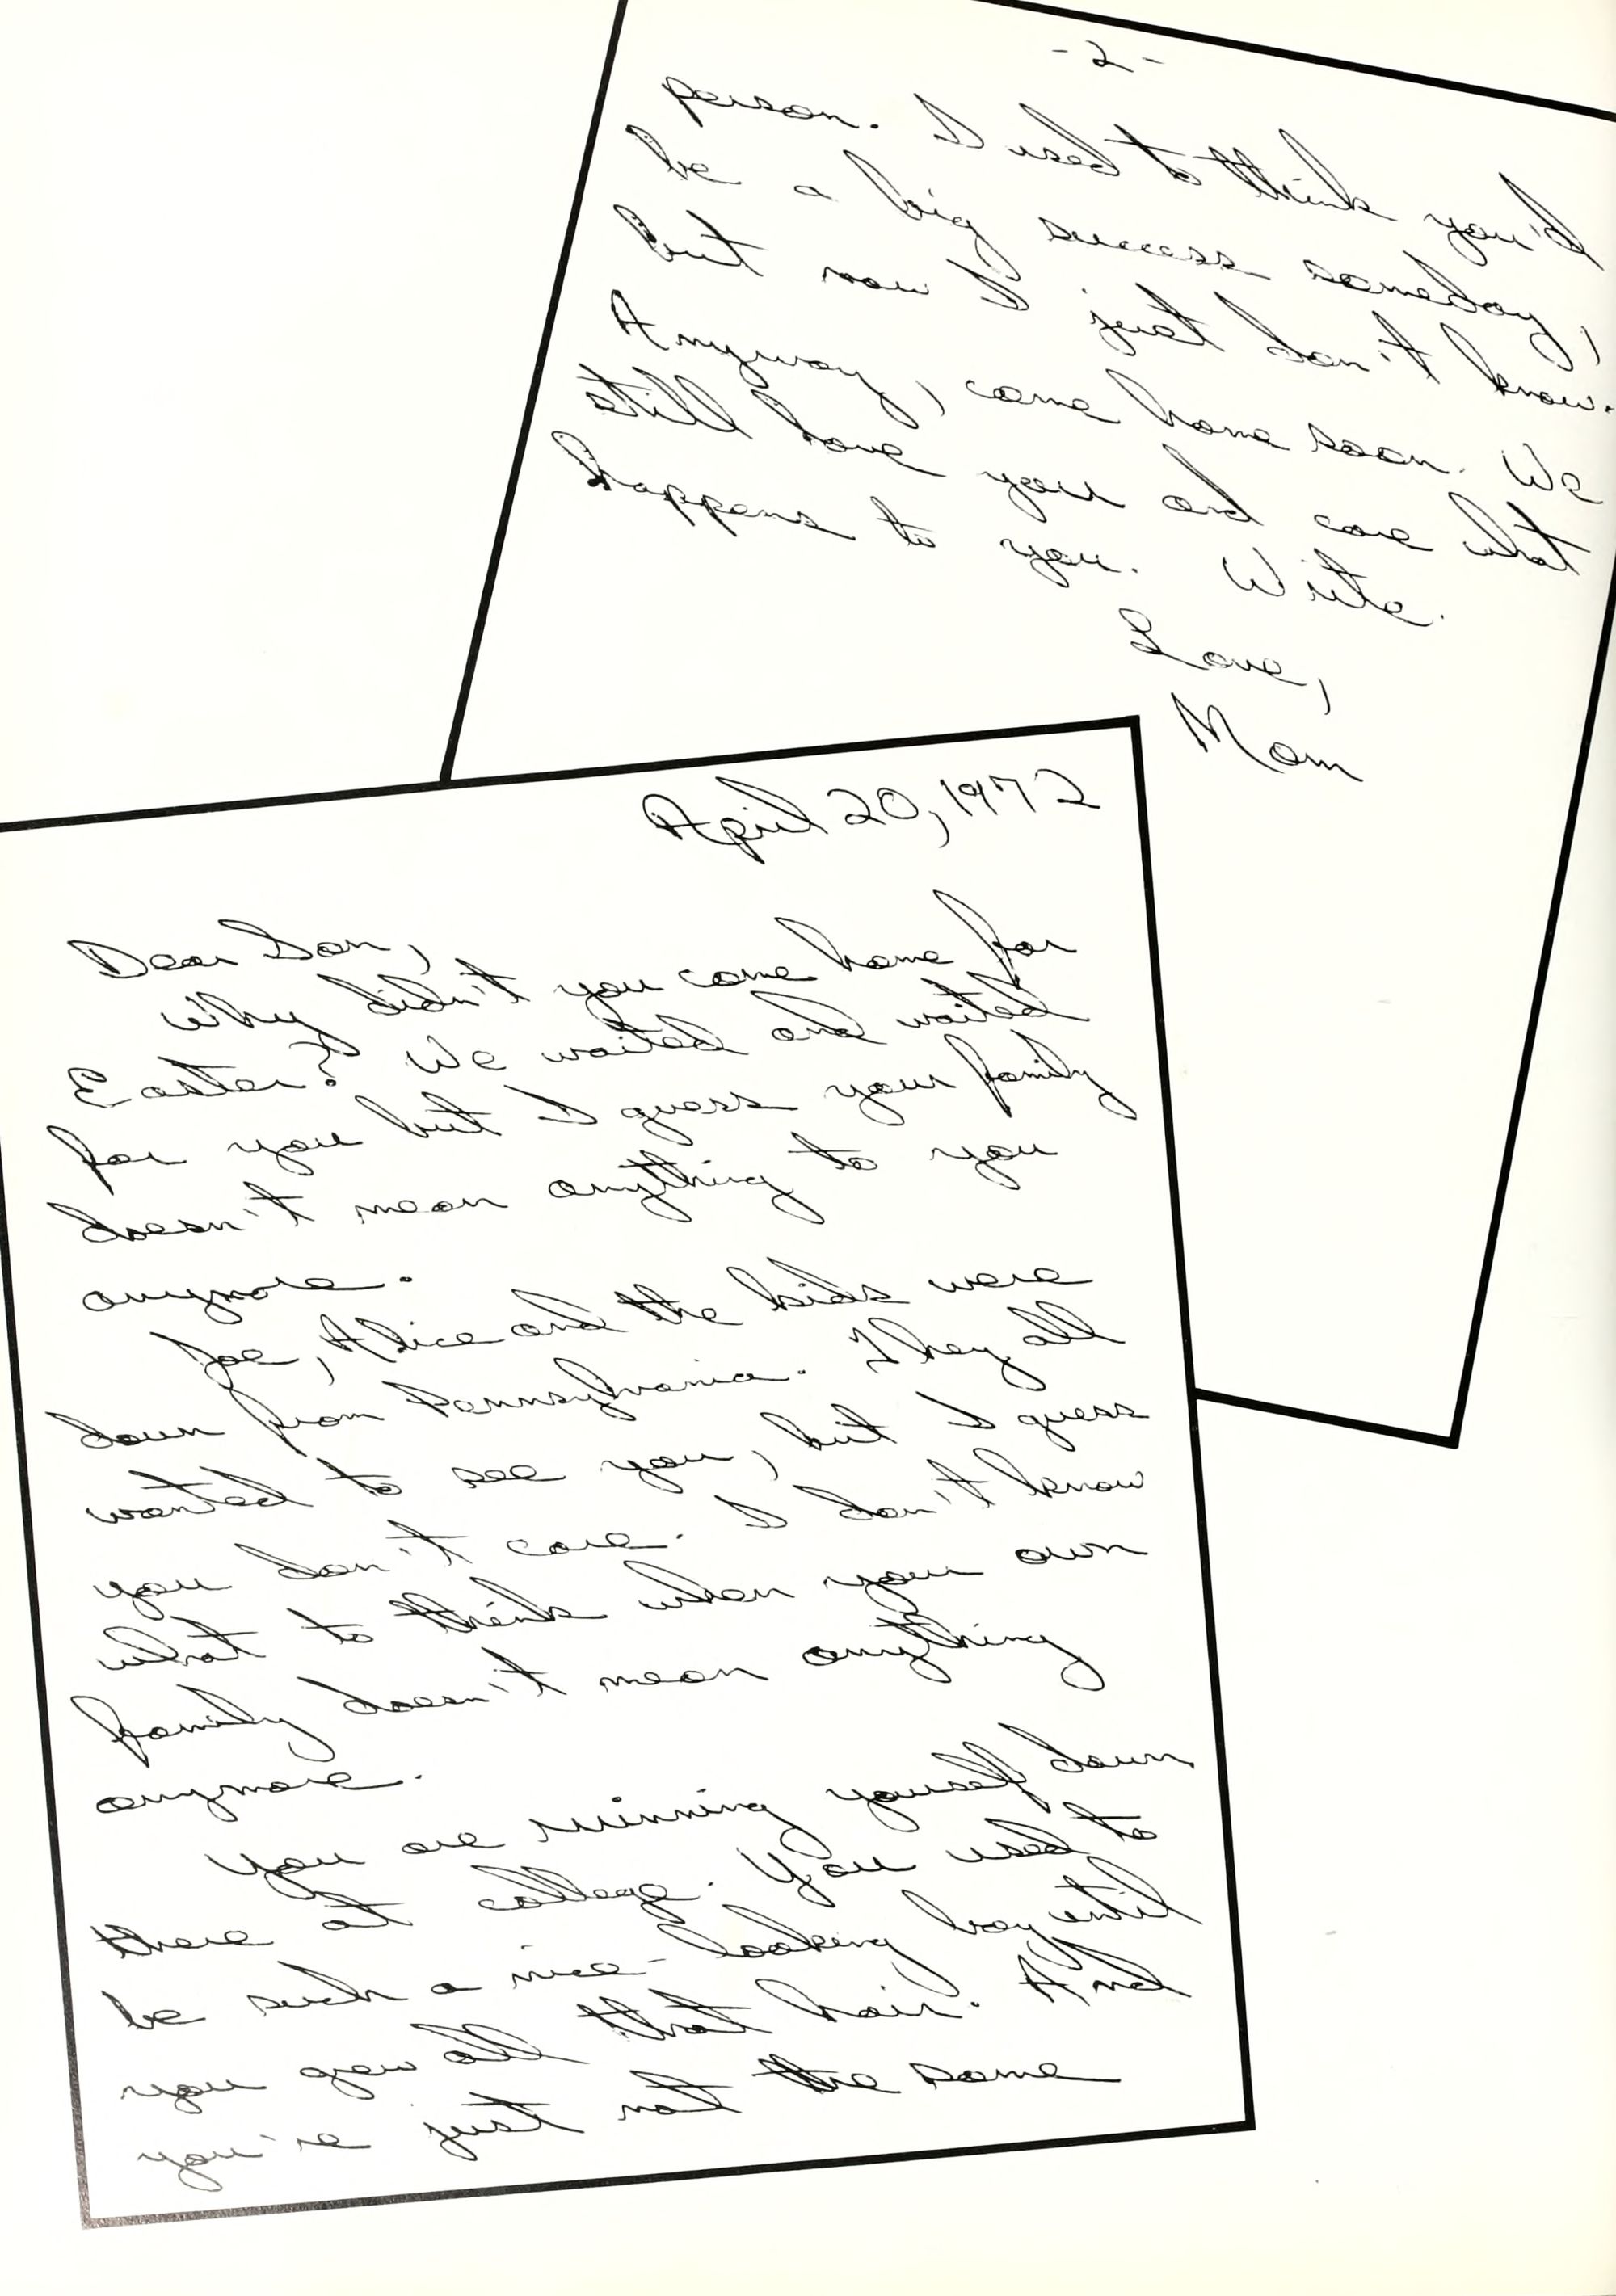 April 20, 1972
Dear Son,
Why didn't you come home for
Easter? We waited and waited
for you but I guess your family
doesn't mean anything to you
anymore.
Joe, Alice and the kids were
down from Pennsylvania. They all
wanted to see you, but I guess
you don't care. I don't know
what to think when your own
family doesn't mean anything
anymore.
You are running yourself down
there at college. You used to
be such a nice-looking boy until
you grew all that hair. And
you're just not the same
-2-
person. I used to think you'd
be a big success someday,
but now I just don't know.
Anyway, come home soon. We
still love you and care what
happens to you. Write.
Love,
Mom